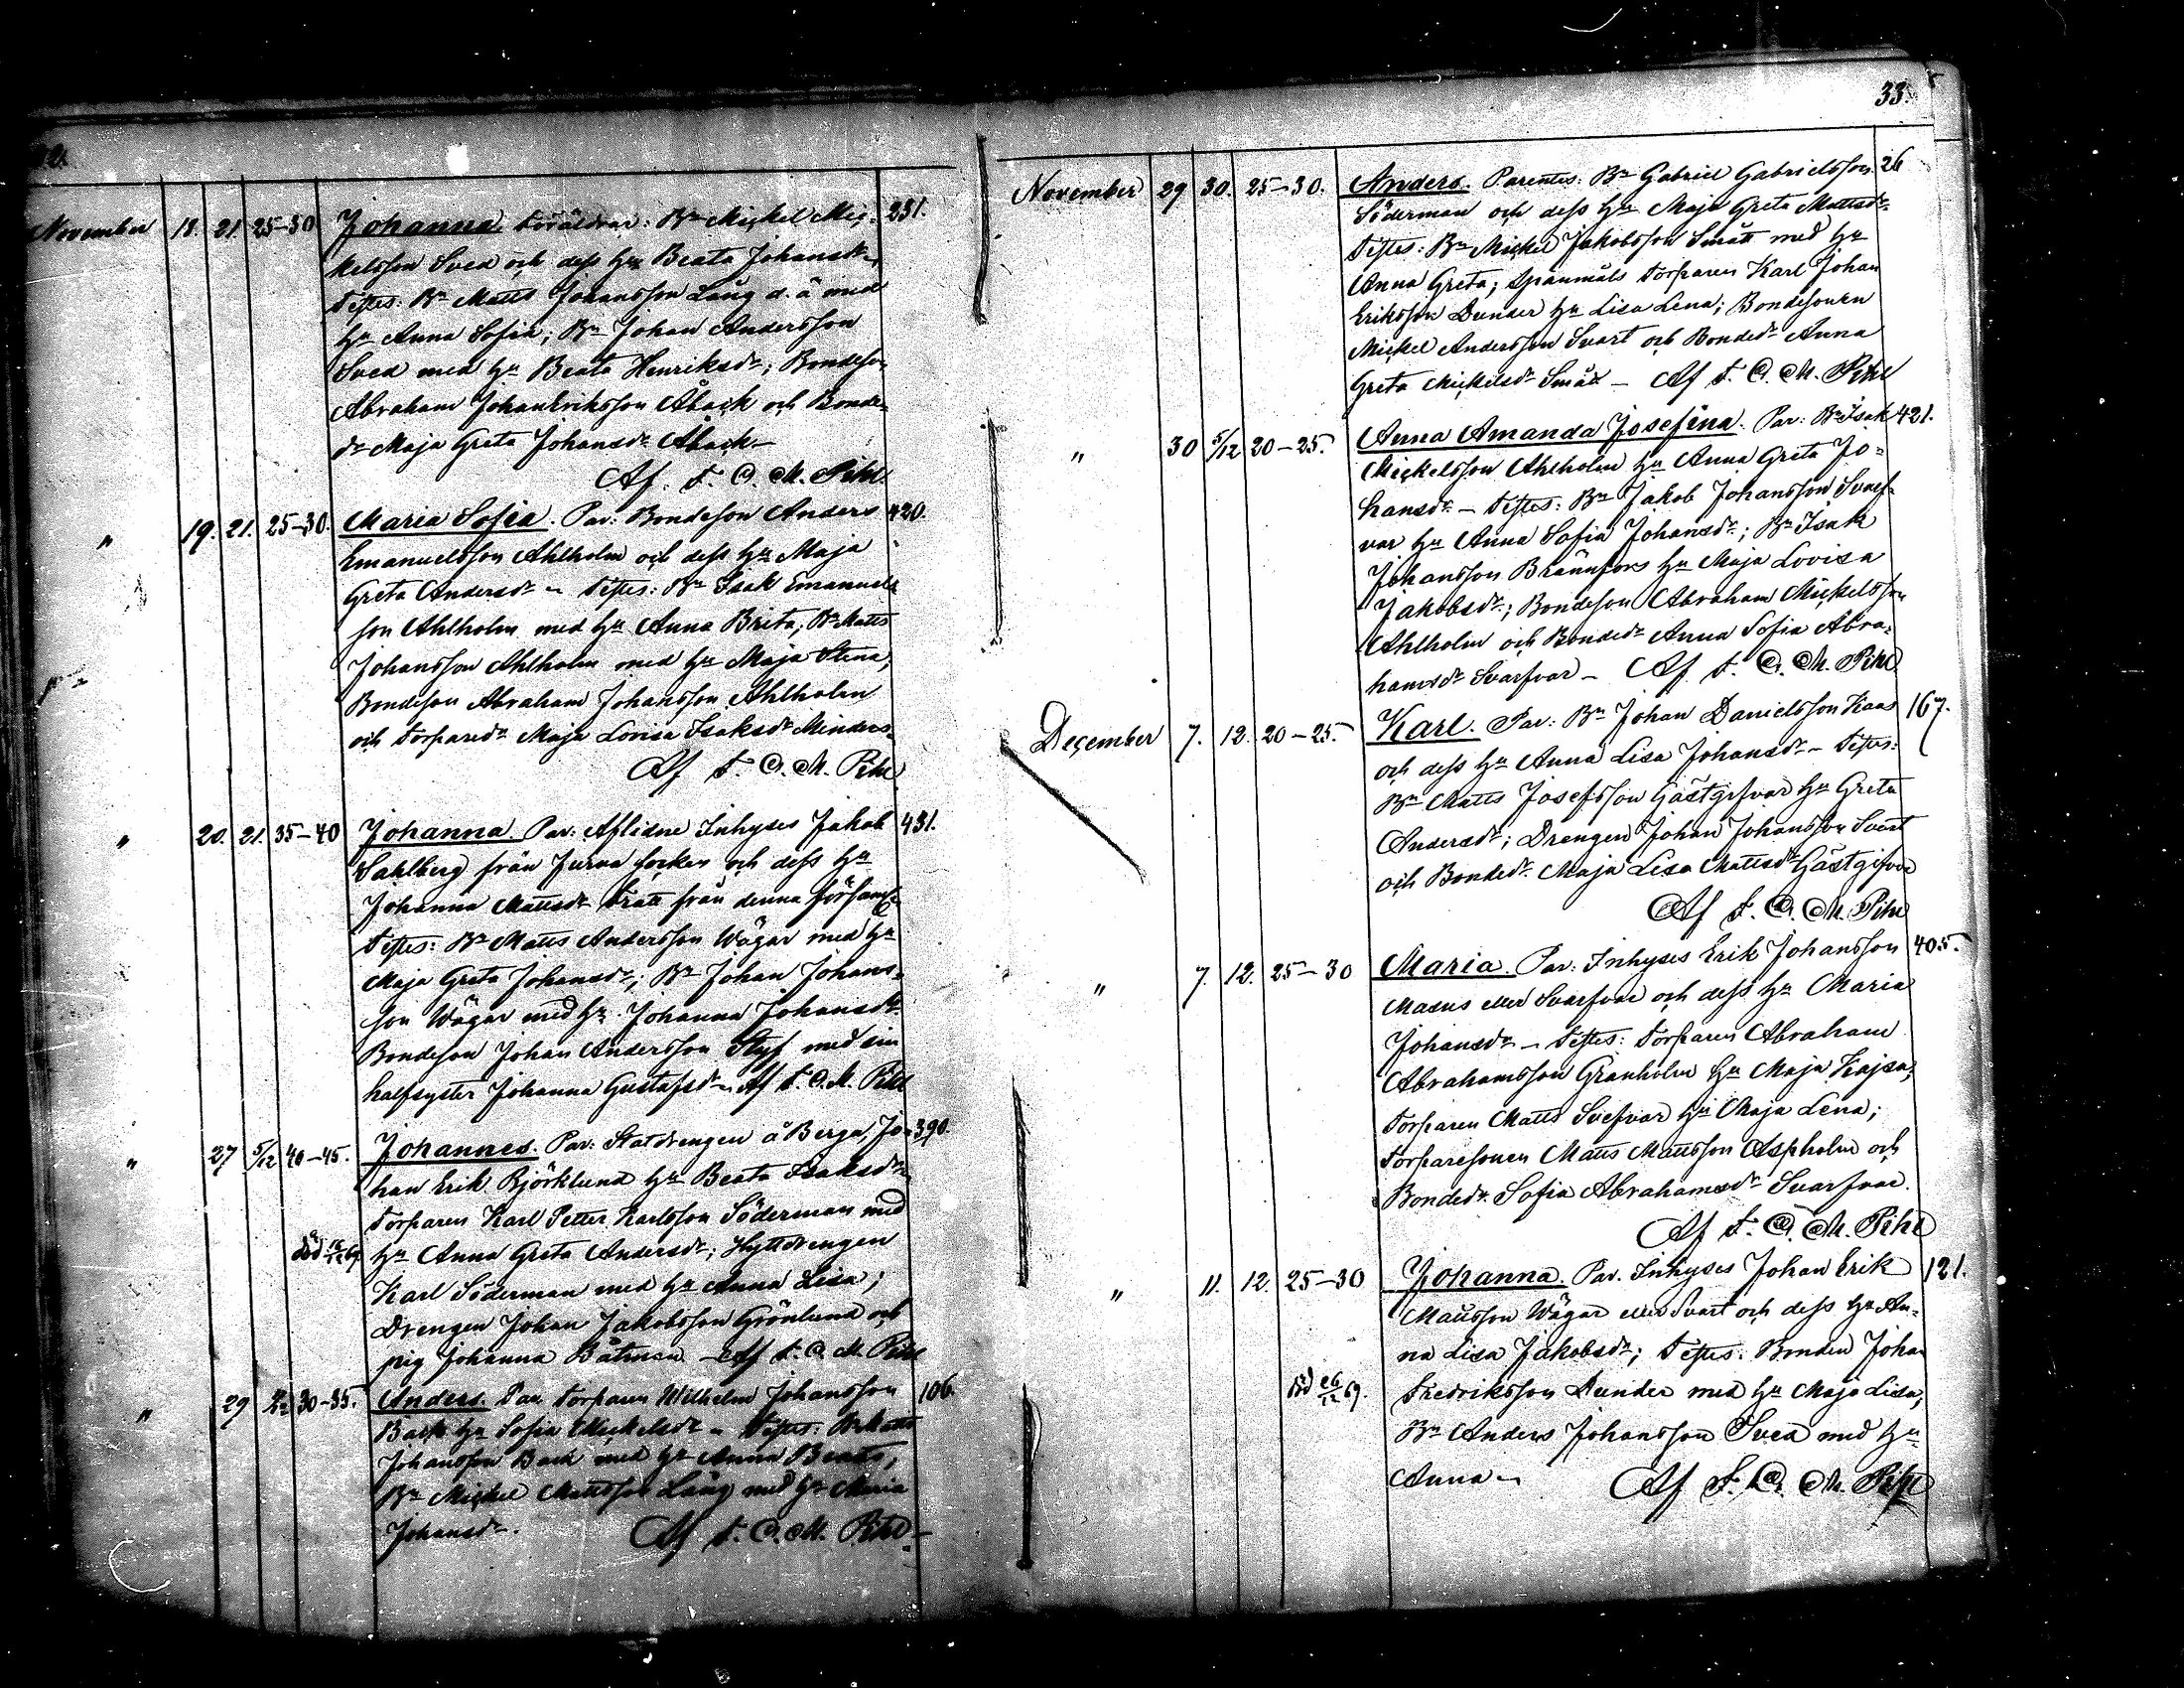 November 18. 21. 25–30 Johanna. Föräldrar: Bn Mickel Mic- 231.
kelsson Sved och dess hu Beata Johansdr
Testes: Bn Matts Johansson Lång d. ä med
hu Anna Sofia; Bn Johan Andersson
Sved med hu Beata Henriksdr; Bondeson
Abraham Johan Eriksson Åback och Bonde-
dr Maja Greta Johansdr Åback –
Af. F. O. M. Pihl.
" 19. 21. 25–30. Maria Sofia. Par: Bondeson Anders 420.
Emanuelsson Ahlholm och dess hu Maja
Greta Andersdr – Testes: Bn Isak Emanuels
son Ahlholm med hu Anna Brita; Bn Matts
Johansson Ahlholm med hu Maja Stina,
Bondeson Abraham Johansson Ahlholm
och Torparedr Maja Lovisa Isaksdr Minders
Af F. O. M. Pihl
" 20. 21. 35–40 Johanna Par: Aflidne Inhyses Jakob 431.
Sahlberg från Jurva socken och dess hu
Johanna Mattsdr Tratt från denna församl.
Testes: Bn Matts Andersson Wägar med hu
Maja Greta Johansdr; Bn Johan Johans-
son Wägar med hu Johanna Johansdr
Bondeson Johan Andersson Styf med sin
halfsyster Johanna Gustafsdr – Af F. O. M. Pihl
" 27 5/12 40–45. Johannes. Par: Statdrengen å Berga, Jo- 390.
han Erik Björklund hu Beata Isaksdr
Torparen Karl Petter Karlsson Söderman med
död 69 hu Anna Greta Andersdr; Hyttdrengen
Karl Söderman med hu Anna Lisa;
Drengen Johan Jakobsson Grönlund och
pig Johanna Båtman – Af F. O. M. Pihl
" 29 30–35. Anders. Par Torparen Wilhelm Johansson 106.
Back hu Sofia Mickelsdr – Testes: Bn Matts
Johansson Back med hu Anna Beata,
Bn Mickel Mattsson Lång med hu Maria
Johansdr. Af F. O. M. Pihl –
33.
November 29 30. 25–30. Anders. Parentes: Bn Gabriel Gabrielsson 26
Söderman och dess hu Maja Greta Mattsdr
Testes: Bn Mickel Jakobsson Smått med hu
Anna Greta; Spanmåls Torparen Karl Johan
Eriksson Dunder hu Lisa Lena; Bondesonen
Mickel Andersson Svart och Bondedr Anna
Greta Mickelsdr Smått – Af F. O. M. Pihl
" 30 5/12 20–25. Anna Amanda Josefina. Par: Bn Isak 421.
Mickelsson Ahlholm hu Anna Greta Jo-
hansdr – Testes: Bn Jakob Johansson Svarf-
var hu Anna Sofia Johansdr; Bn Isak
Johansson Brännfors hu Maja Lovisa
Jakobsdr; Bondeson Abraham Mickelsson
Ahlholm och Bondedr Anna Sofia Abra-
hamsdr Svarfvar – Af F. O. M. Pihl
December 7. 12. 20–25. Karl. Par: Bn Johan Danielsson Kaas 167.
och dess hu Anna Lisa Johansdr – Testes:
Bn Matts Josefsson Gästgifvar hu Greta
Andersdr; Drengen Johan Johansson Svart
och Bondedr Maja Lisa Mattsdr Gästgifvar
Af F. O. M. Pihl
" 7. 12. 25–30 Maria. Par: Inhyses Erik Johansson 405.
Masus eller Svarfvar och dess hu Maria
Johansdr – Testes: Torparen Abraham
Abrahamsson Granholm hu Maja Kajsa;
Torparen Matts Svefvar hu Maja Lena;
Torparesonen Matts Mattsson Aspholm och
Bondedr Sofia Abrahamsdr Svarfvar.
Af F. O. M. Pihl
" 11. 12. 25–30 Johanna. Par. Inhyses Johan Erik 121.
Mattsson Wägar eller Svart och dess hu An-
na Lisa Jakobsdr; Testes: Bonden Johan
död 26/12 69. Fredriksson Dunder med hu Maja Lisa,
Bn Anders Johansson Sved med hu
Anna – Af F. O. M. Pihl